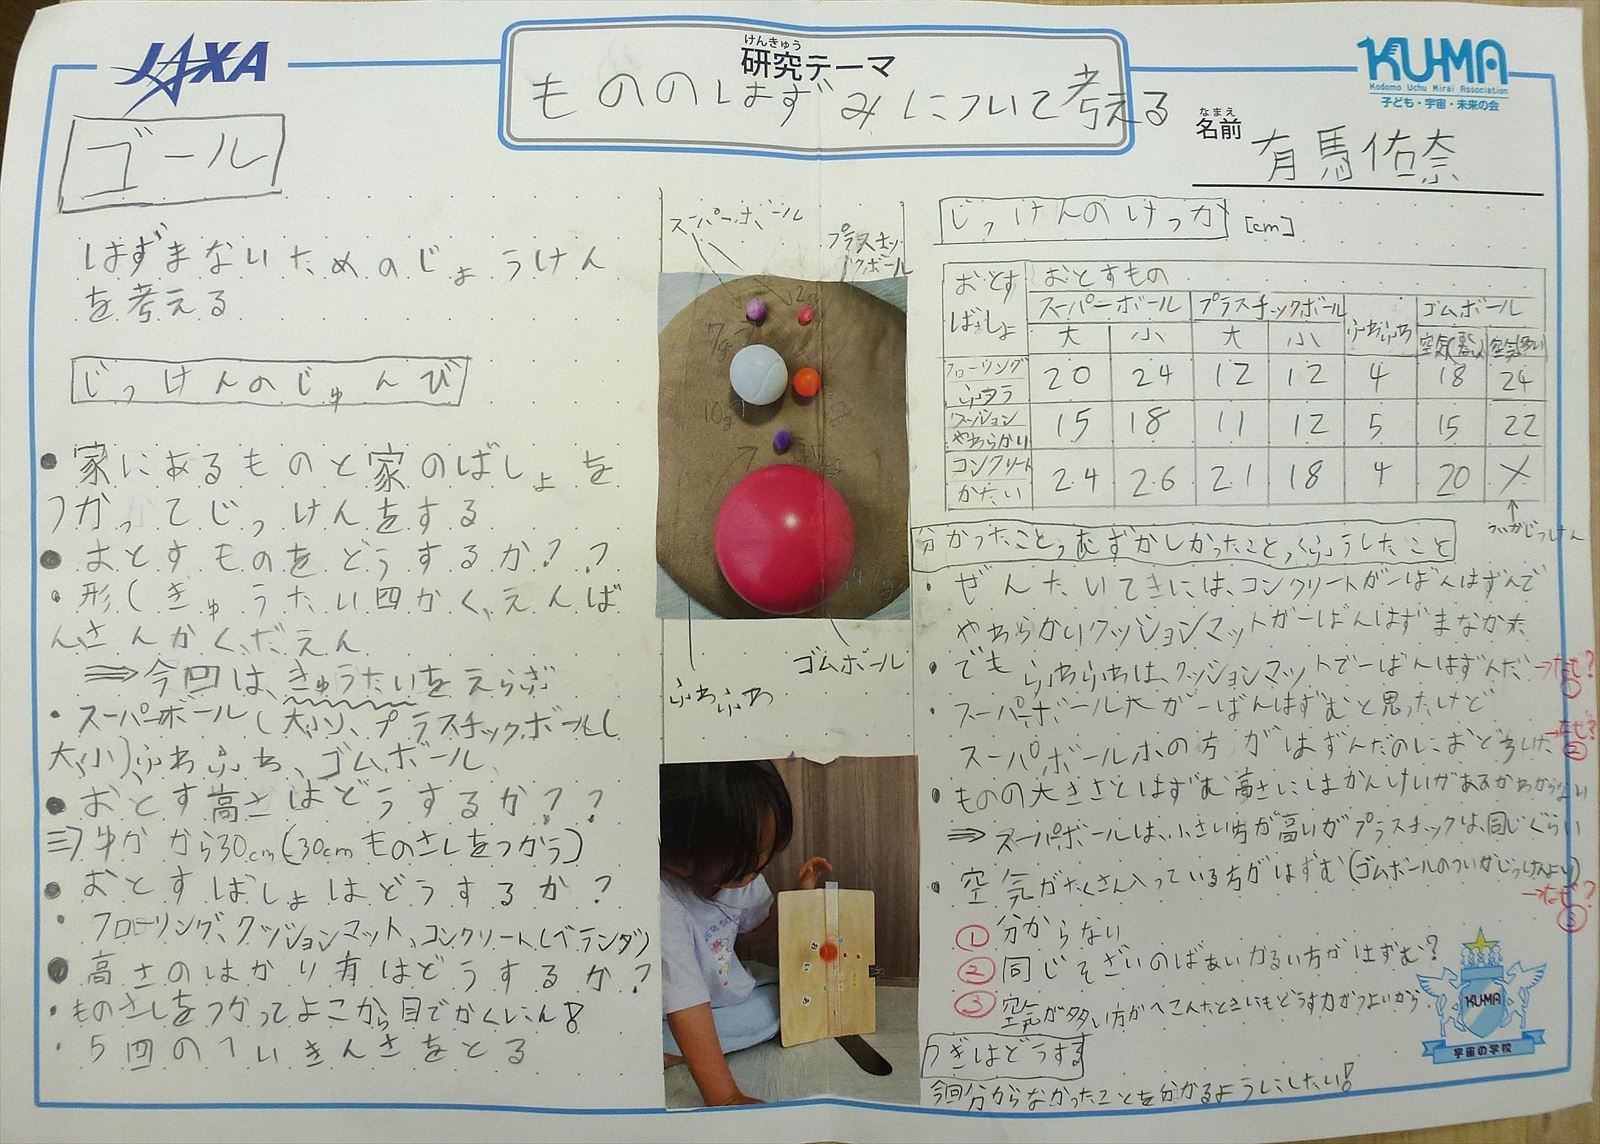 JAXA
けんきゅう
研究テーマ
もののはずみについて考える
KU-MA
Kodomo Uchu Mirai Association
子ども・宇宙・未来の会
なまえ
名前
有馬佑奈
ゴール
はずまないためのじょうけん
を考える
じっけんのじゅんび
・家にあるものと家のばしょを
つかってじっけんをする
・おとすものをどうするか??
・形(きゅうたい四かく、えんば
ん、さんかく、だえん
⇒今回は、きゅうたいをえらぶ
・スーパーボール(大、小)、プラスチックボール(
大、小)、ふわふわ、ゴムボール、
・おとす高さはどうするか??
⇒ゆかから30cm(30cmものさしをつかう)
・おとすばしょはどうするか?
・フローリング、クッションマット、コンクリート(ベランダ)
・高さのはかり有はどうするか?
・ものさしをつかってよこから目でかくにん!
・5回のへいきんさをとる
スーパーボール
プラスチッ
クボール
2g
7g
10g
ふわふわ
ゴムボール
じっけんのけっか [cm]
おとす
ばしょ
おとすもの
スーパーボール プラスチックボール ふわふわ ゴムボール
大 小 大 小
フローリング
ふつう
20 24 12 12 4 18 24
クッション
やわらかい
15 18 11 12 5 15 22
コンクリート
かたい
24 26 21 18 4 20 ×
↑
ついかじっけん
分かったこと、むずかしかったこと、くふうしたこと
・ぜんたいてきには、コンクリートが一ばんはずんで
やわらかいクッションマットが一ばんはずまなかった
・でもふわふわは、クッションマットで一ばんはずんだ→なぜ?
①
・スーパーボール大が一ばんはずむと思ったけど
スーパーボール小の方がはずんだのにおどろいた→なぜ?
②
・ものの大きさとはずむ高さにはかんけいがあるかわからない
⇒スーパーボールは、小さい方が高いがプラスチックは、同じぐらい
・空気がたくさん入っている方がはずむ(ゴムボールのついかじっけんより)
→なぜ?
③
①分からない
②同じそざいのばあいかるい方がはずむ?
③空気が多い方がへこんだときにもどう力がつよいから
つぎはどうする
今回分からなかったことを分かるようにしたい!
KU-MA
宇宙の学校